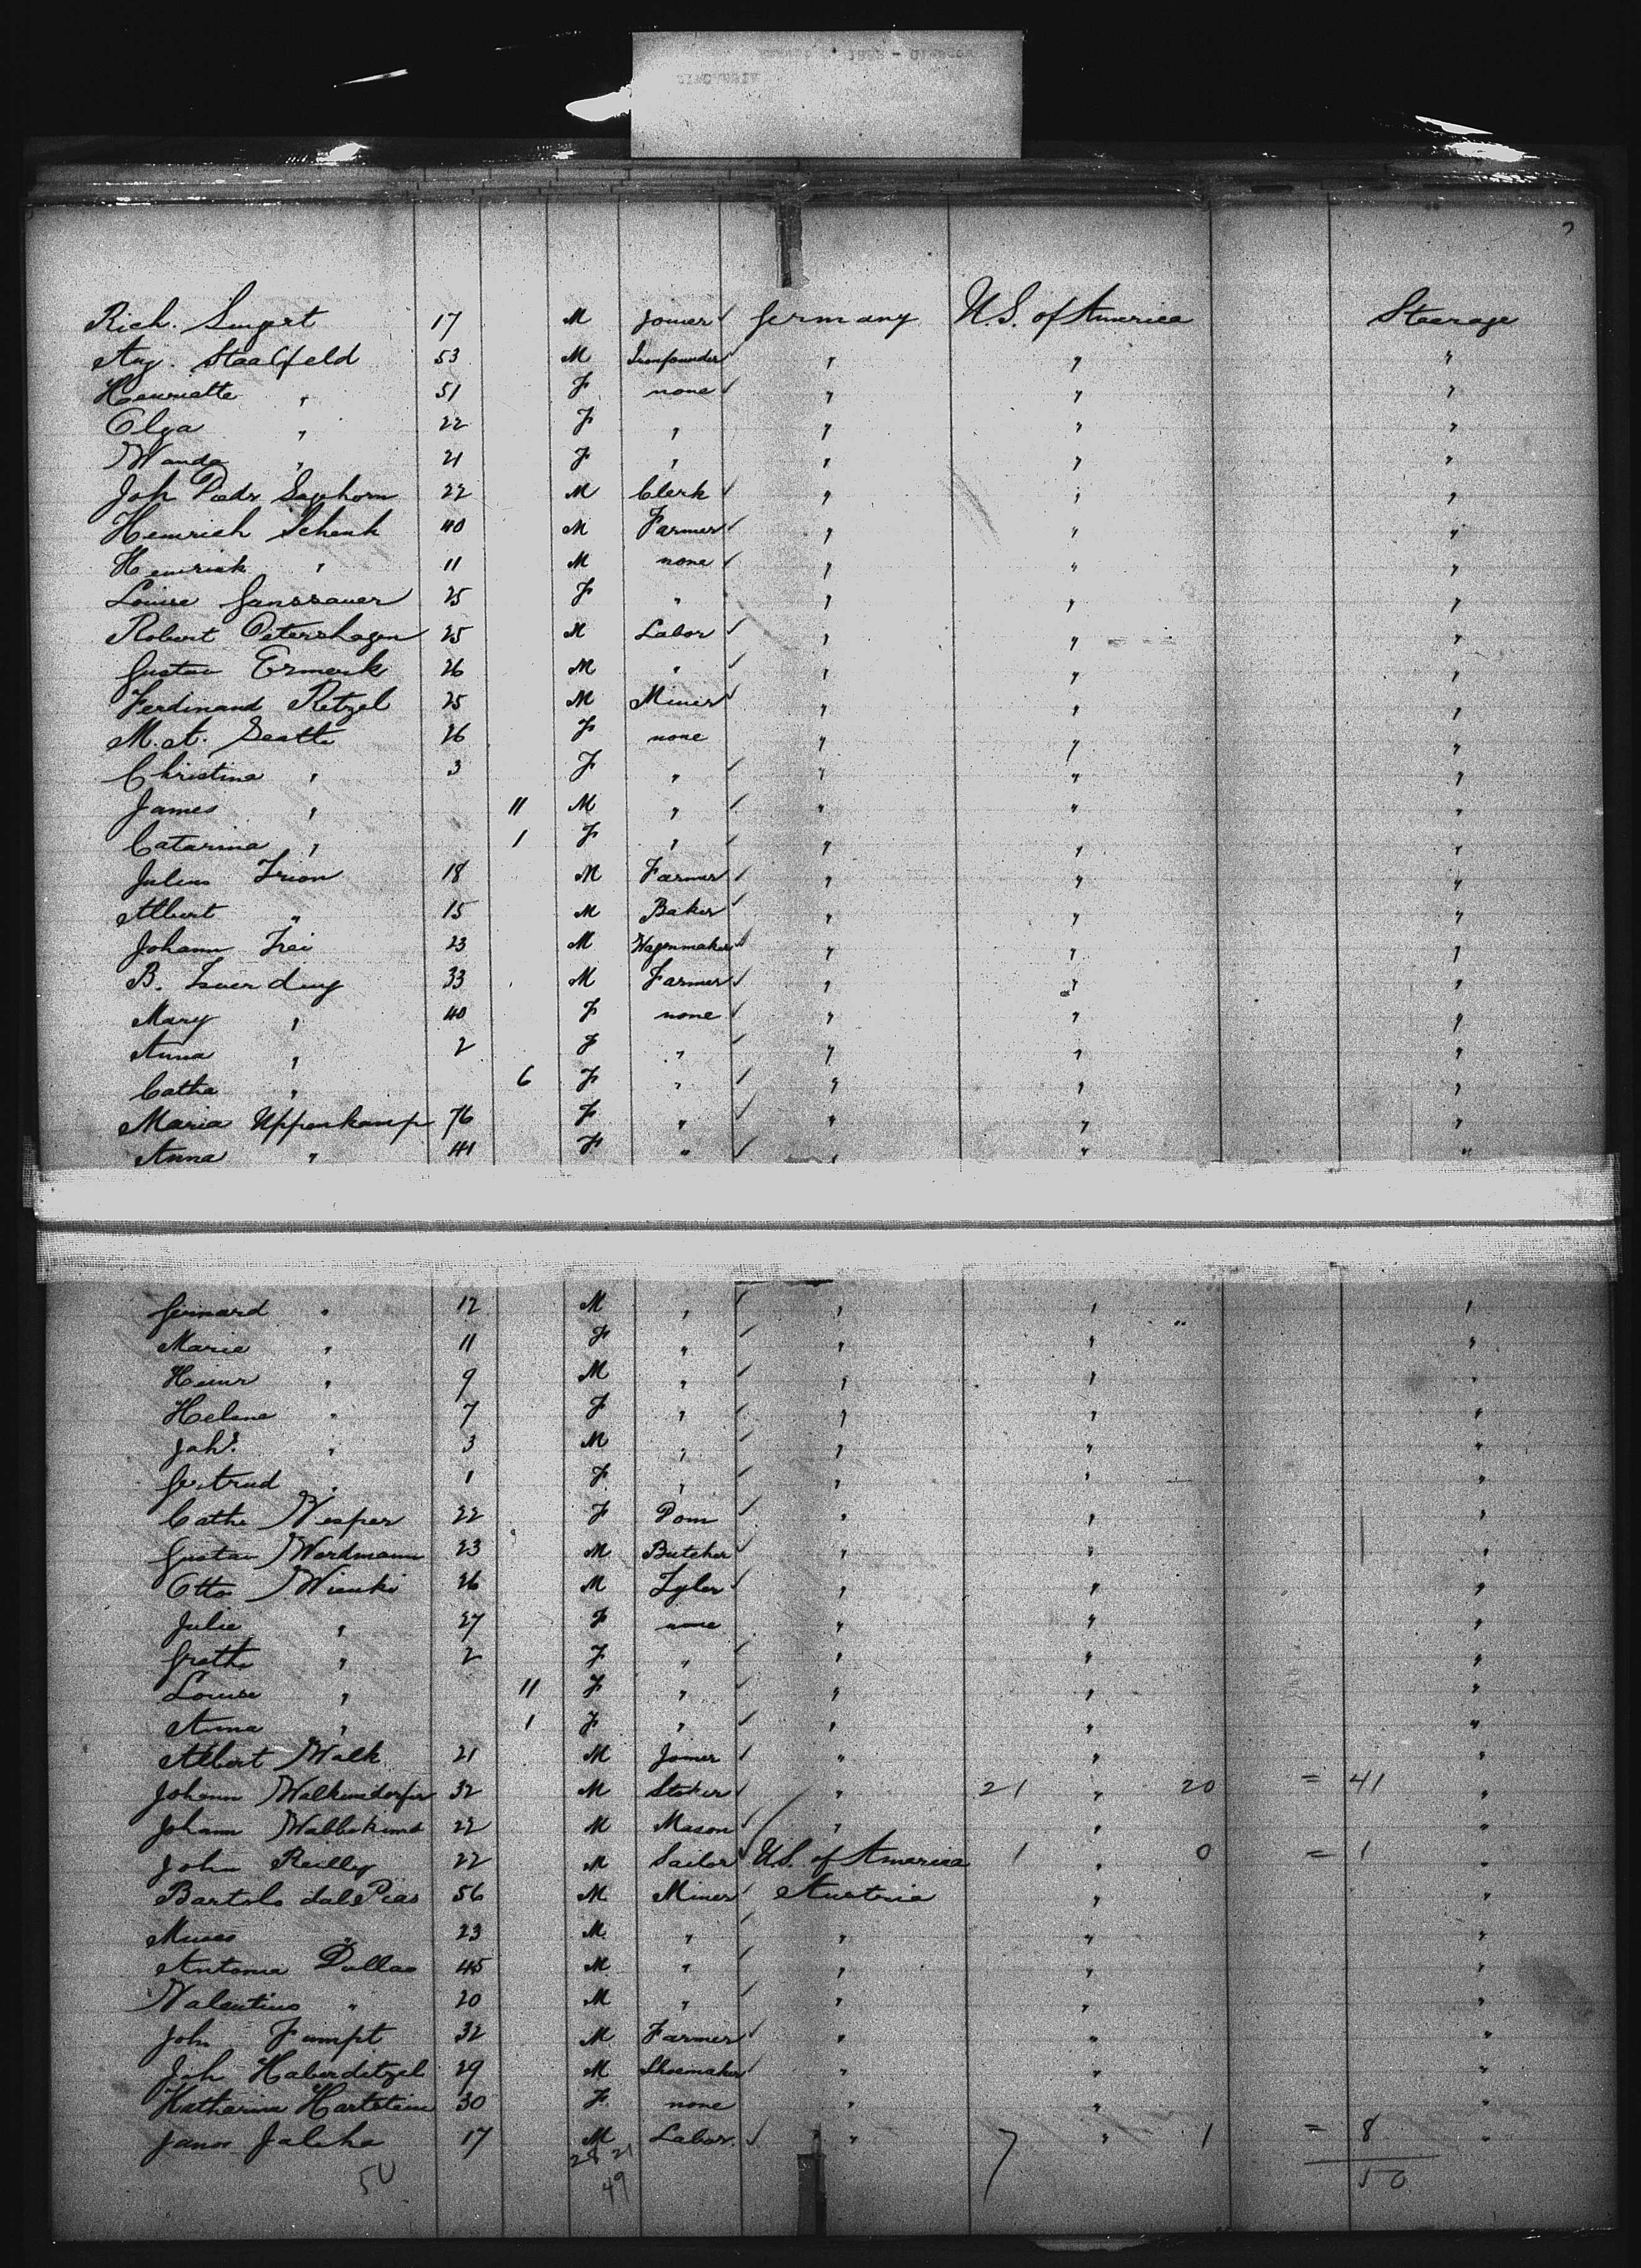 Rich. 17 M Joiner Germany U.S. of America Steerage
Aug. Staalfeld 53 M Ironfounder " " "
Henriette " 51 F none " " "
Olga " 22 F " " " "
Wanda " 21 F " " " "
Joh Died. Sagehorn 22 M Clerk " " "
Heinrich Schenk 40 M Farmer " " "
Heinrich " 11 M none " " "
Louise Ganssauer 25 F " " " "
Robert Petershagen 25 M Labor " " "
Gustav Ermark 26 M " " " "
Ferdinand Retzel 25 M Miner " " "
M. A. Seatte 26 F none " " "
Christina " 3 F " " " "
James " 11 M " " " "
Catarina " 1 F " " " "
Julius Trion 18 M Farmer " " "
Albert " 15 M Baker " " "
Johann Frei 23 M Wagonmaker " " "
B. 33 M Farmer " " "
Mary " 40 F none " " "
Anna " 2 F " " " "
Catha " 6 F " " " "
Maria Uppenkamp 76 F " " " "
Anna " 41 F " " " "
Gernard " 12 M " " " "
Marie " 11 F " " " "
Heinr " 9 M " " " "
Helene " 7 F " " " "
Joh. " 3 M " " " "
Gertrud " 1 F " " " "
Cathe Vesper 22 F Dom " " "
Gustav Wordmann 23 M Butcher " " "
Otto Wienke 26 M Tyler " " "
Julie " 27 F none " " "
Grethe " 2 F " " " "
Louise " 11 F " " " "
Anna " 1 F " " " "
Albert Walk 21 M Joiner " " "
Johann Walkensdorfer 32 M Stoker " 21 " 20 = 41 "
Johann 22 M Mason " " "
John Reilly 22 M Sailor U.S. of America 1 " 0 = 1 "
Bartolo dal Pias 56 M Miner Austria " "
" 23 M " " " "
Antonia Dallao 45 M " " " "
Valentino " 20 M " " " "
John Fumpt 32 M Farmer " " "
Joh Haberditzel 29 M Shoemaker " " "
Katharina Hartstein 30 F none " " "
Janos Jaleha 17 M Labor. " 7 " 1 = 8 "
50 28 21 50
49